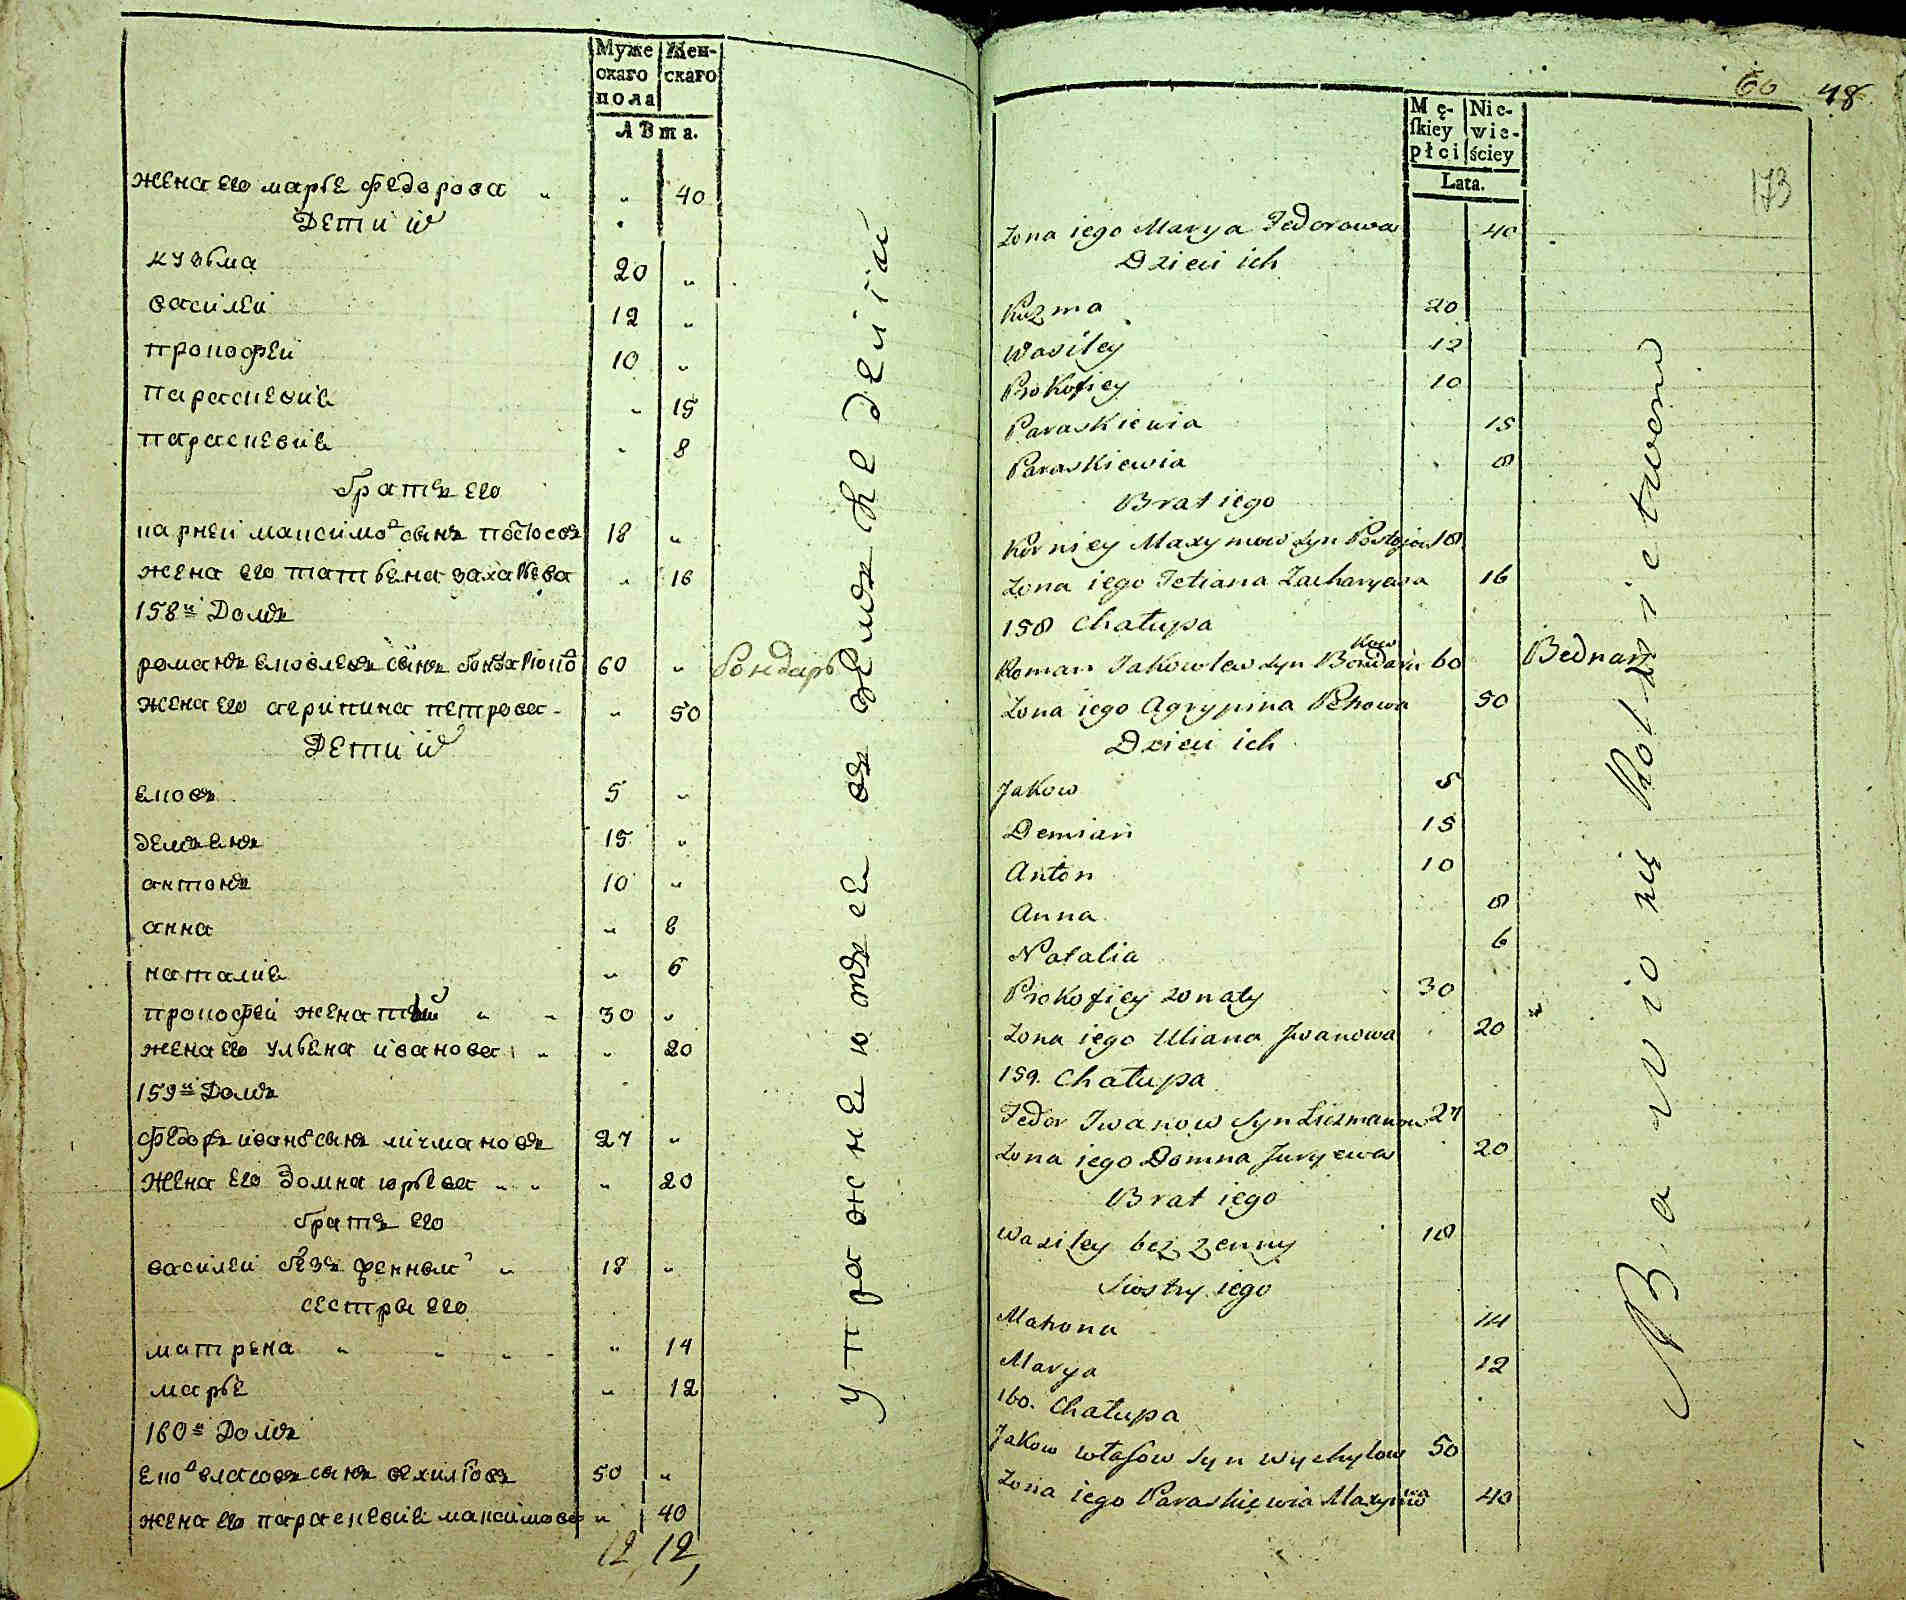 Муже Жен-
скаго скаго
пола
лѣта.
жена его марѣя федорова „ „ 40
Дети их
кузьма 20 „
василей 12 „
прокофей 10 „
параскевия „ 15
параскевия „ 8
братъ его
карней максимовъ сынъ 18 „
жена его татьяна захарьева „ 16
158й Домъ
романъ яковлевъ сынъ 60 „ бондарь
жена его агрипина петрова „ 50
Дети их
яковъ 5 „
демьянъ 15 „
антонъ 10 „
анна „ 8
наталия „ 6
прокофей женатый „ „ 30 „
жена его ульяна иванова „ „ 20
159й Домъ
федоръ ивановъ сынъ личмановъ 27 „
жена его домна юрьева „ „ „ 20
братъ его
василей безъ „ 18 „
сестры его
матрена „ „ „ „ 14
марья „ 12
160й Домъ
яковъ власовъ сынъ 50 „
жена его параскевия максимова „ 40
12 12
упражняются въ земледелии
60 48
173
Mę- Nie-
ſkiey wie-
płci ściey
Lata.
Żona iego Marya Fedorowa 40
Dzieci ich
Kuzma 20
Wasiley 12
Prokofiey 10
Paraskiewia 15
Paraskiewia 8
Brat iego
Korniey Maxymow syn 18
Żona iego Tetiana Zacharyewa 16
158 Chałupa
Roman Jakowlew syn Bondarukow 60 Bednarz
Żona iego Agrypina Petrowa 50
Dzieci ich
Jakow 5
Demian 15
Anton 10
Anna 8
Natalia 6
Prokofiey żonaty 30
Żona iego Uliana Jwanowa 20
159. Chałupa
Fedor Jwanow syn Liczmanow 27
Żona iego Domna Juryewa 20
Brat iego
Wasiley bez żenny 18
Siostry iego
Matrona 14
Marya 12
160. Chałupa
Jakow Własow syn Wychylow 50
Żona iego Paraskiewia Maxymowa 40
Bawią się Rolnictwem